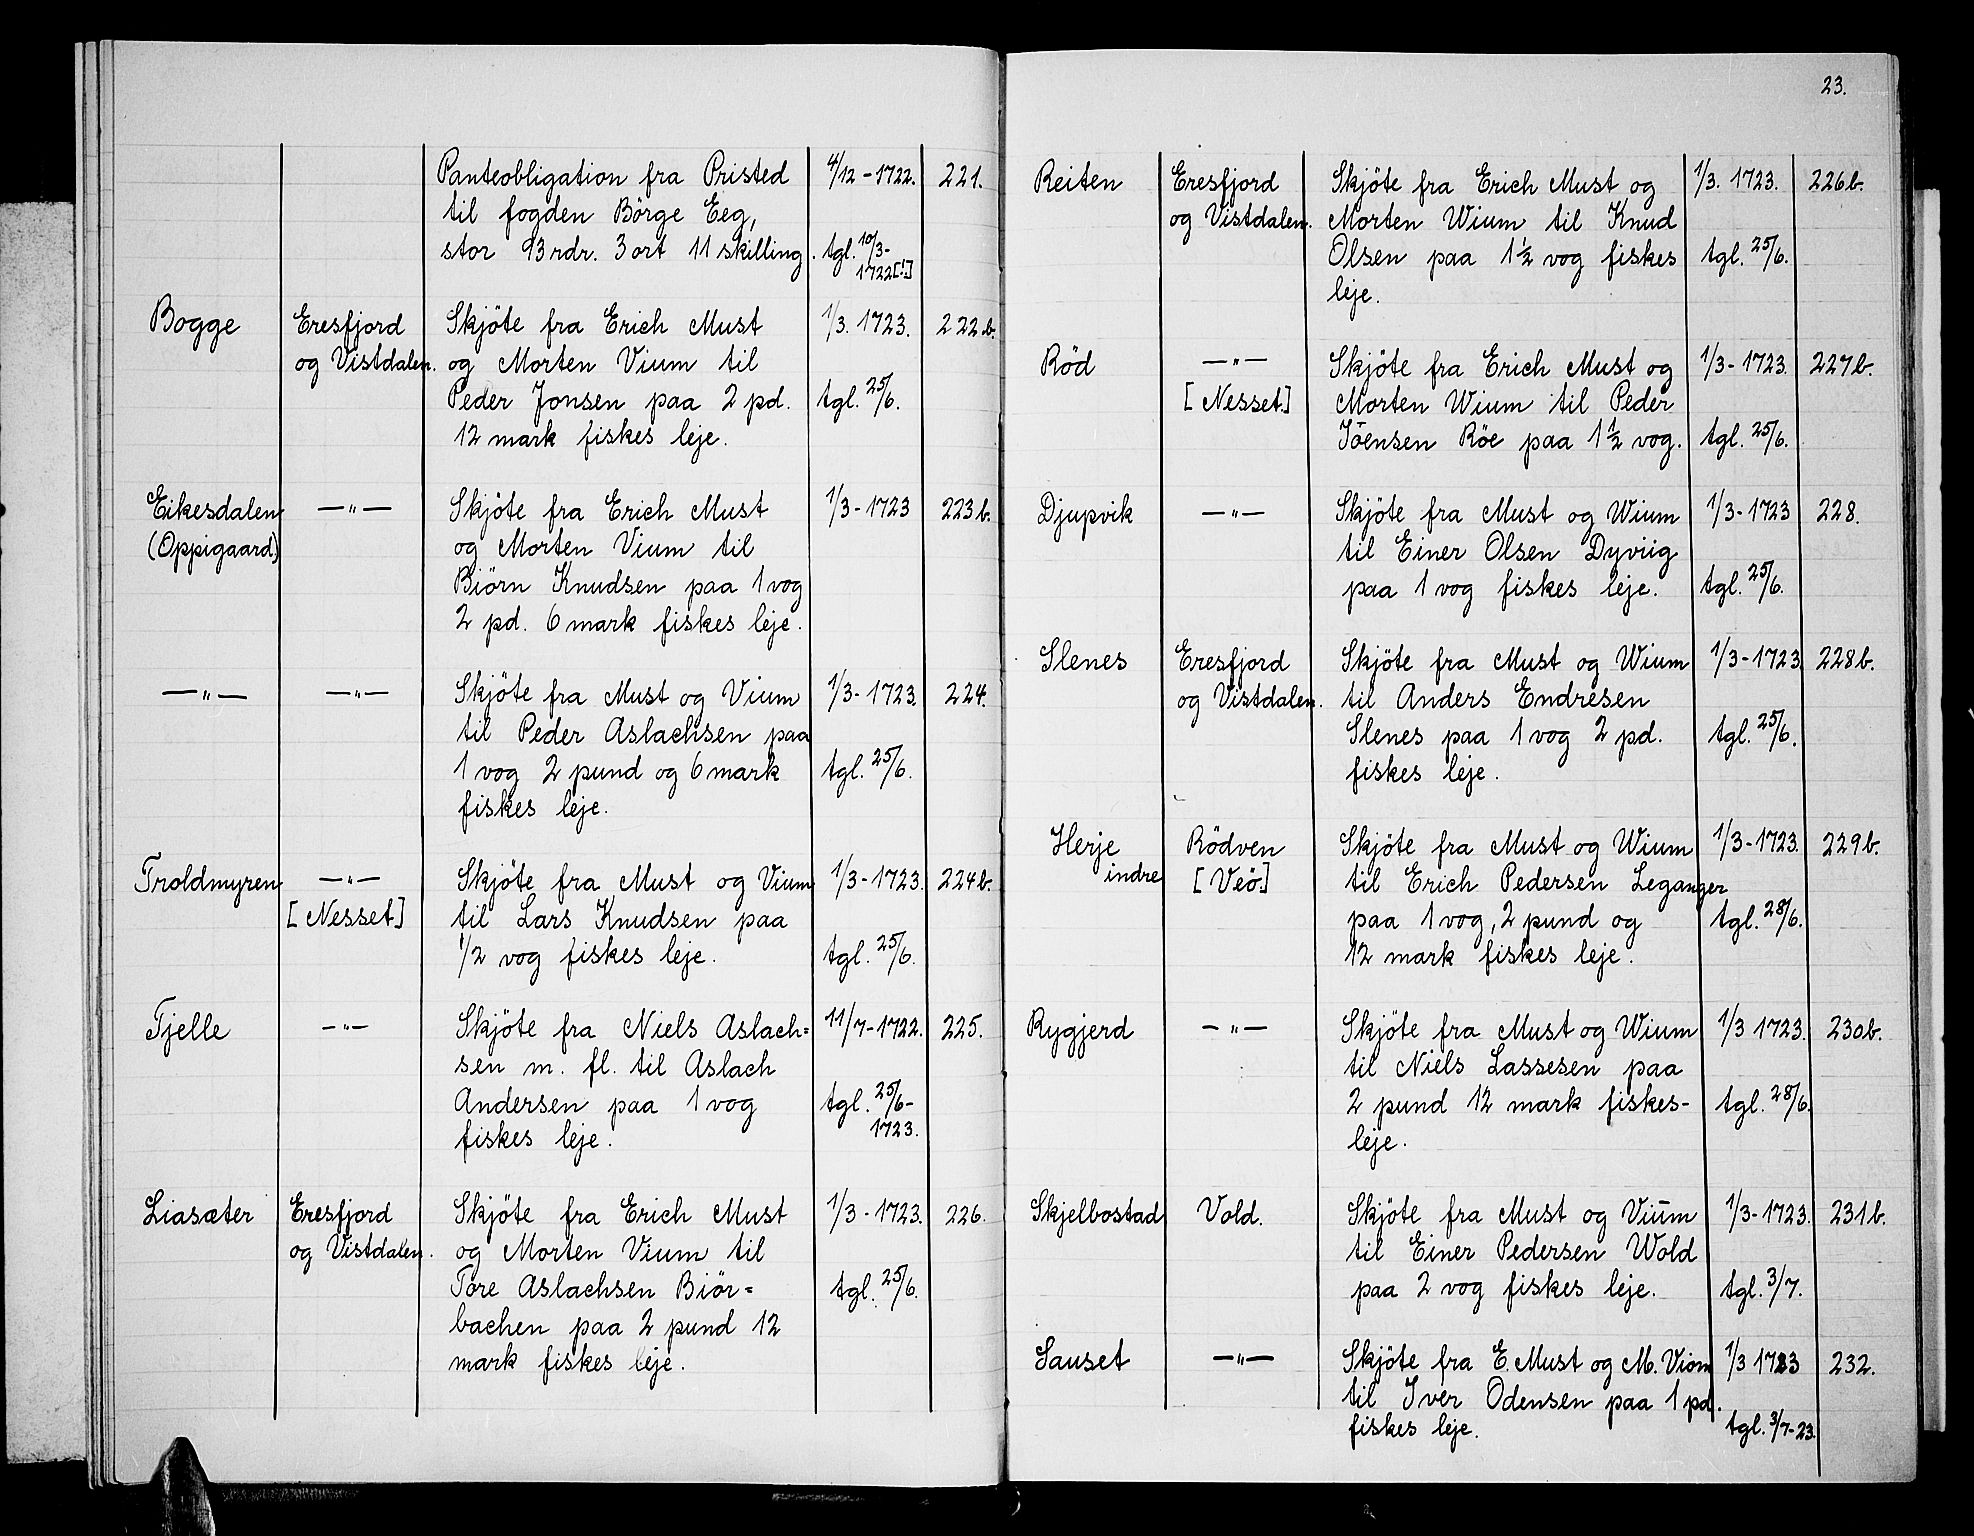 Panteobligation fra Pristed 4/12-1722. 221.
til fogden Börge Eeg,
stor 93 rdr. 3 ort 11 skilling. tgl. 10/3-
1722[!]
Bogge Eresfjord Skjöte fra Erich Must 1/3. 1723. 222b.
og Vistdalen. og Morten Vium til
Peder Jonsen paa 2 pd. tgl. 25/6.
12 mark fiskes leje.
Eikesdalen —"— Skjöte fra Erich Must 1/3-1723 223b.
(Oppigaard) og Morten Vium til
Biörn Knudsen paa 1 vog
2 pd. 6 mark fiskes leje.
—"— —"— Skjöte fra Must og Vium 1/3-1723. 224.
til Peder Aslachsen paa
1 vog 2 pund og 6 mark tgl. 25/6.
fiskes leje.
Troldmyren —"— Skjöte fra Must og Vium 1/3-1723. 224b.
[Nesset] til Lars Knudsen paa
1/2 vog fiskes leje. tgl. 25/6.
Tjelle —"— Skjöte fra Niels Aslach= 11/7-1722. 225.
sen m. fl. til Aslach
Andersen paa 1 vog tgl. 25/6-
fiskes leje. 1723.
Liasæter Eresfjord Skjöte fra Erich Must 1/3-1723. 226.
og Vistdalen. og Morten Vium til
Tore Aslachsen Biör= tgl. 25/6.
bachen paa 2 pund 12
mark fiskes leje.
23.
Reiten Eresfjord Skjöte fra Erich Must og 1/3. 1723. 226b.
og Vistdalen. Morten Wium til Knud
Olsen paa 1 1/2 vog fiskes tgl. 25/6.
leje.
Röd —"— Skjöte fra Erich Must og 1/3-1723. 227b.
[Nesset] Morten Wium til Peder
Jöensen Röe paa 1 1/2 vog. tgl. 25/6.
Djupvik —"— Skjöte fra Must og Wium 1/3-1723 228.
til Einer Olsen Dyviig
paa 1 vog fiskes leje. tgl. 25/6.
Slenes Eresfjord Skjöte fra Must og Wium 1/3-1723 228b.
og Vistdalen. til Anders Endresen
Slenes paa 1 vog 2 pd. tgl. 25/6.
fiskes leje.
Herje Rödven Skjöte fra Must og Wium 1/3-1723. 229b.
indre [Veö] til Erich Pedersen Leganger
paa 1 vog, 2 pund og tgl. 28/6.
12 mark fiskes leje.
Rygjerd —"— Skjöte fra Must og Wium 1/3 1723. 230b.
til Niels Lassesen paa
2 pund 12 mark fiskes- tgl. 28/6.
leje.
Skjelbostad Vold. Skjöte fra Must og Vium 1/3-1723. 231b.
til Einer Pedersen Wold
paa 2 vog fiskes leje. tgl. 3/7.
Sauset —"— Skjöte fra E. Must og M. Vium 1/3 1723 232.
til Iver Odensen paa 1 pd.
fiskes leje. tgl. 3/7-23.